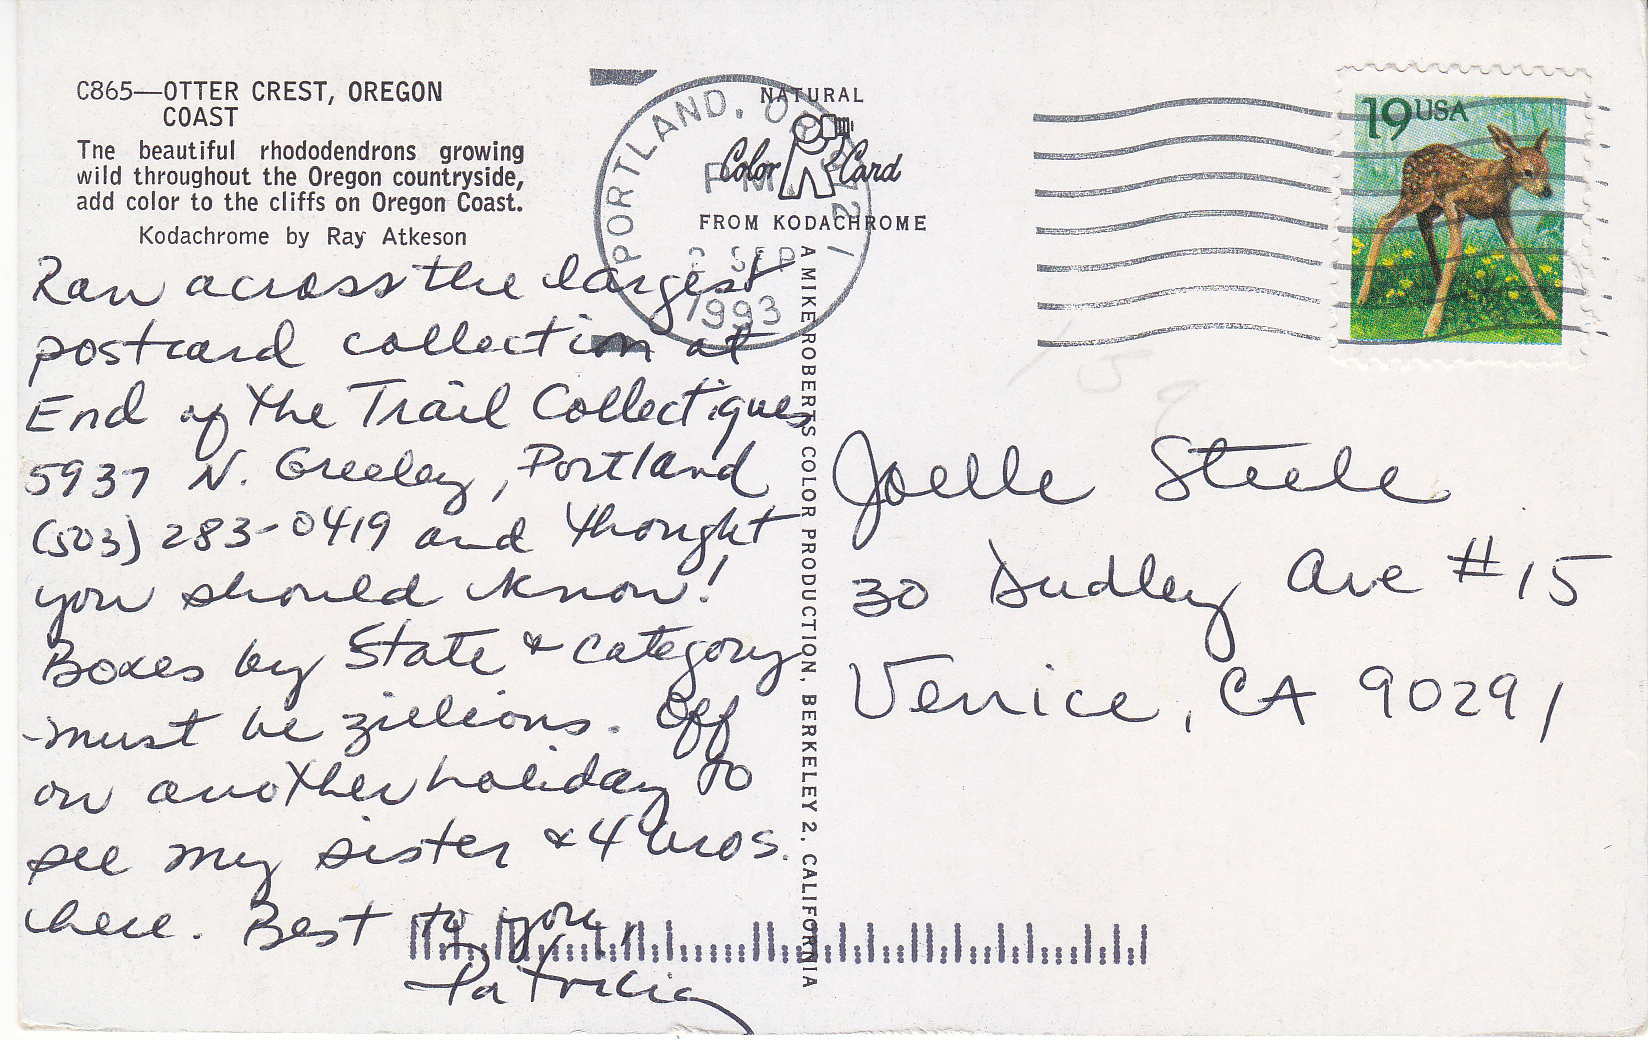 C865—OTTER CREST, OREGON
COAST
Tne beautiful rhododendrons growing
wild throughout the Oregon countryside,
add color to the cliffs on Oregon Coast.
Kodachrome by Ray Atkeson
Ran across the largest
postcard collection at
End of the Trail Collectiques
5937 N. Greeley, Portland
(503) 283-0419 and thought
you should know!
Boxes by State & category
must be zillions. Off
on another holiday to
see my sister & 4 bros.
here. Best to you,
Patricia
PORTLAND, OR
PM
SEP
1993
NATURAL
Color Card
FROM KODACHROME
A MIKE ROBERTS COLOR PRODUCTION, BERKELEY 2, CALIFORNIA
19 USA
159
Joelle Steele
30 Dudley Ave #15
Venice, CA 90291